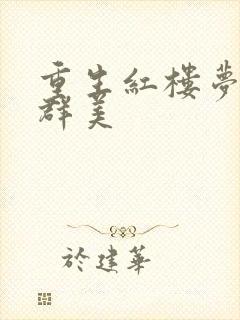 重生紅樓夢
群美
於建華